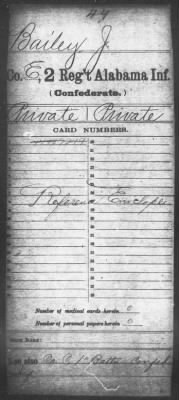 44
Bailey J.
Co. E, 2 Reg't Alabama Inf.
(Confederate.)
Private | Private
CARD NUMBERS.
Reference Envelope
Number of medical cards herein 0
Number of personal papers herein 0
BOOK MARK:
See also Co. C 1"